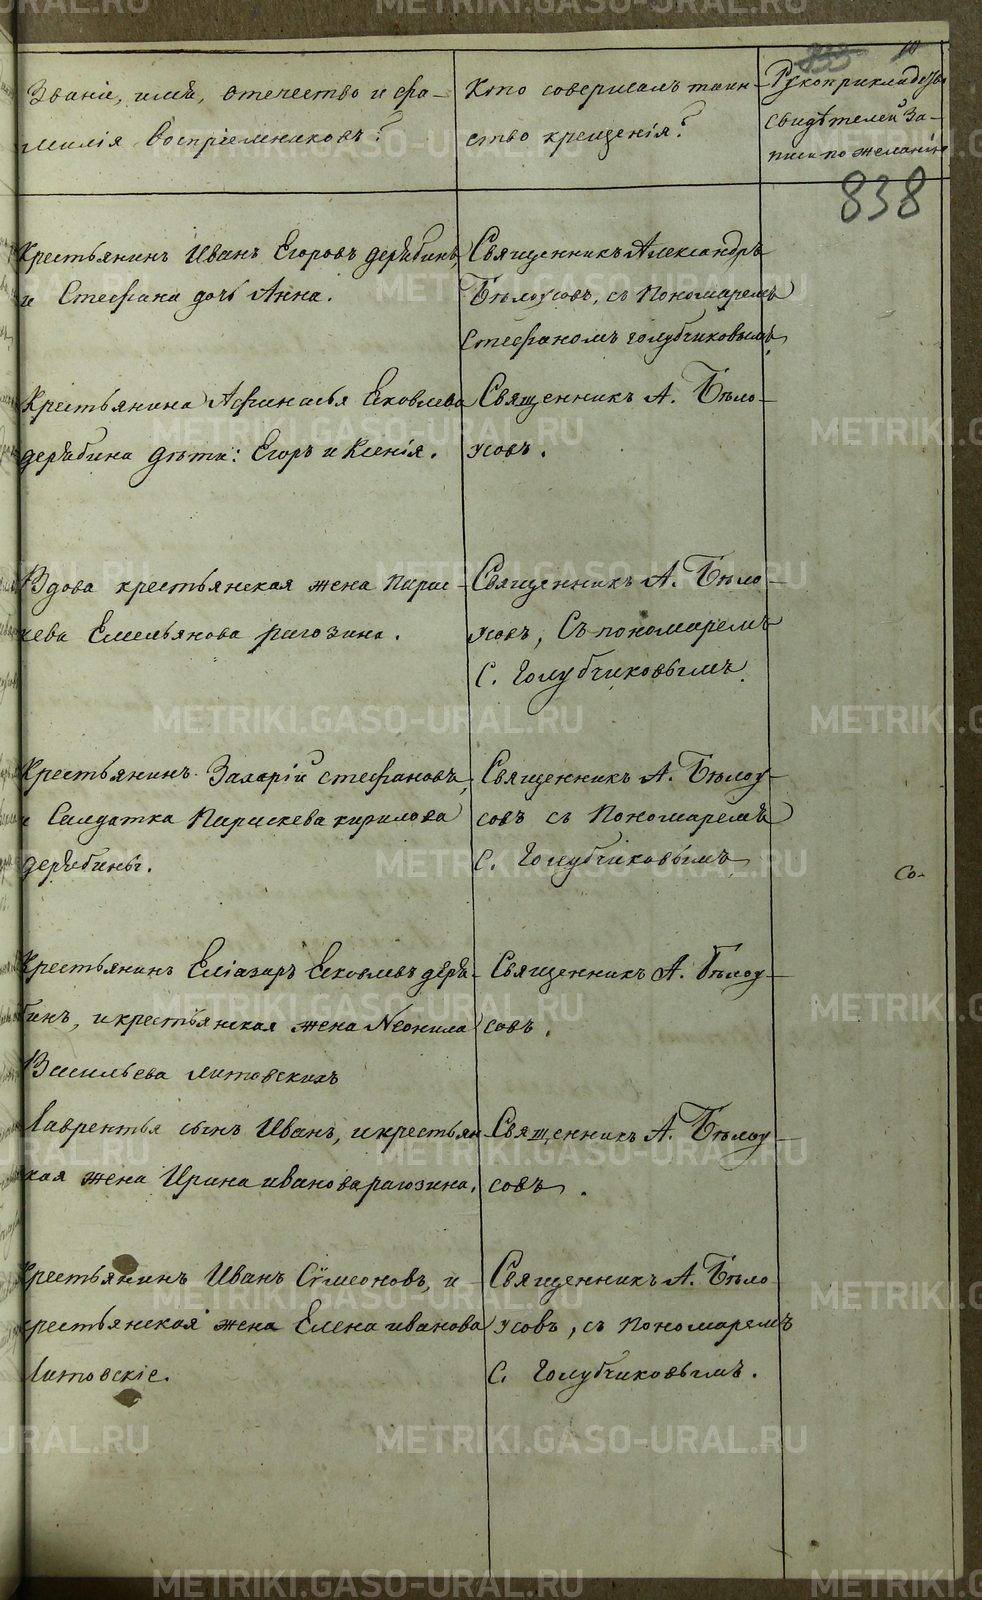 833 10
Званіе, имя, отечество и фа-
милія воспріемниковъ?
Кто совершалъ таин-
ство крещенія?
Рукоприкладство
свидѣтелей за-
писи по желанію
838
Крестьянинъ Иванъ Егоровъ дерябинъ
и Стефана дочь Анна.
Священникъ Александръ
Бѣлоусовъ, съ Пономаремъ
Стефаномъ голубчиковымъ
Крестьянина Афанасья Яковлева
дерябина дѣти: Егоръ и Ксенія.
Священникъ А. Бѣло-
усовъ.
Вдова крестьянская жена Парас-
кева Емельянова рагозина.
Священникъ А. Бѣло-
усовъ, Съ пономаремъ
С. Голубчиковымъ.
Крестьянинъ Захарій стефановъ,
и Салдатка Параскева кирилова
дерябины.
Священникъ А. Бѣлоу-
совъ съ Пономаремъ
С. Голубчиковымъ
Со-
Крестьянинъ Еліазаръ Яковлевъ деря-
бинъ, и крестьянская жена Неонила
Васильева литовскихъ
Священникъ А. Бѣлоу-
совъ.
Лаврентья сынъ Иванъ, и крестьян-
ская жена Ирина иванова рагозина.
Священникъ А. Бѣлоу-
совъ.
Крестьянинъ Иванъ Сѵмеоновъ, и
крестьянская жена Елена иванова
Литовскіе.
Священникъ А. Бѣло-
усовъ, съ пономаремъ
С. Голубчиковымъ.
METRIKI.GASO-URAL.RU